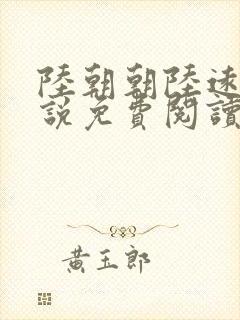 陸朝朝陸
說免費閱讀
黃玉郎